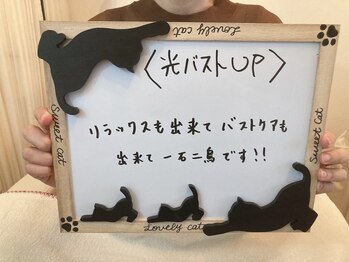 Lovely cat
〈光バストUP〉
リラックスも出来て バストケアも
出来て 一石二鳥です!!
Sweet cat
Sweet cat
Lovely cat